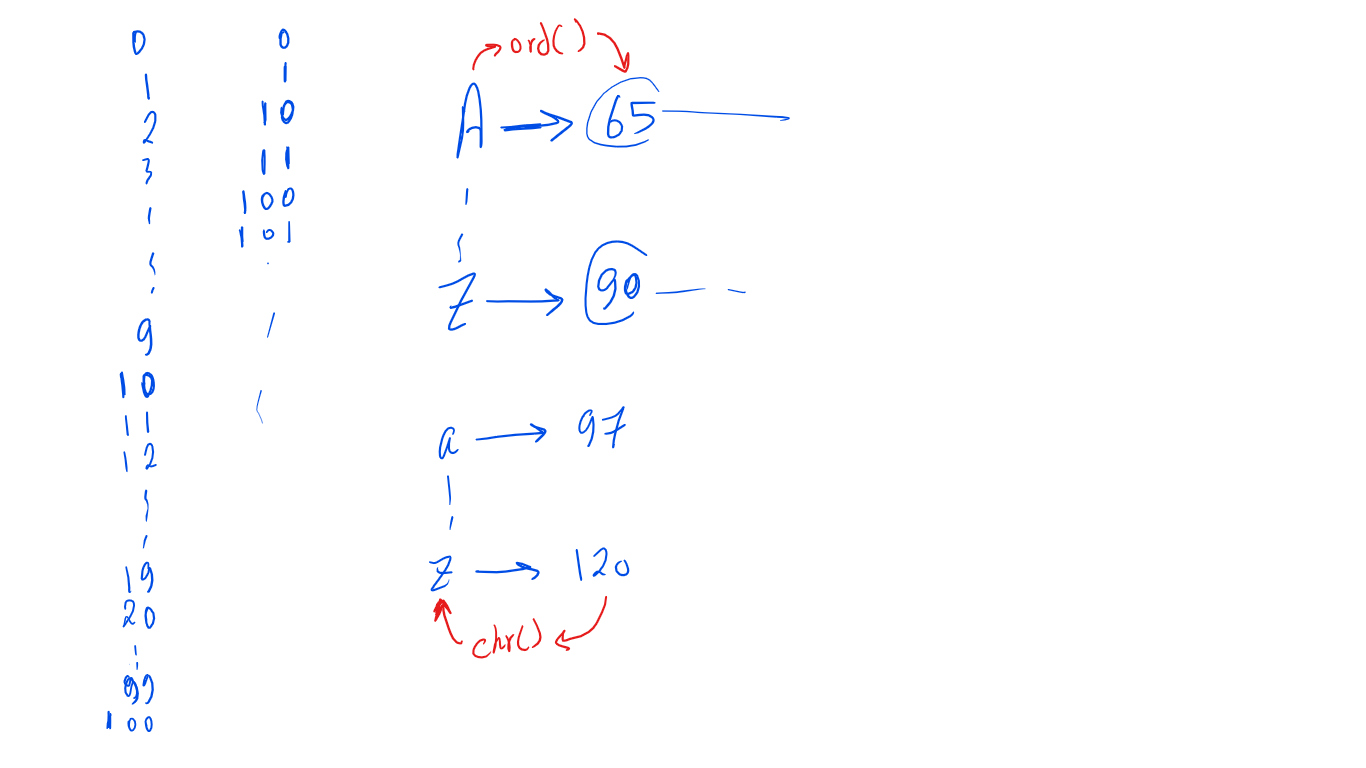 0
1
2
3
9
10
11
12
19
20
99
100
0
1
10
11
100
101
ord()
A → 65
Z → 90
a → 97
z → 120
chr()